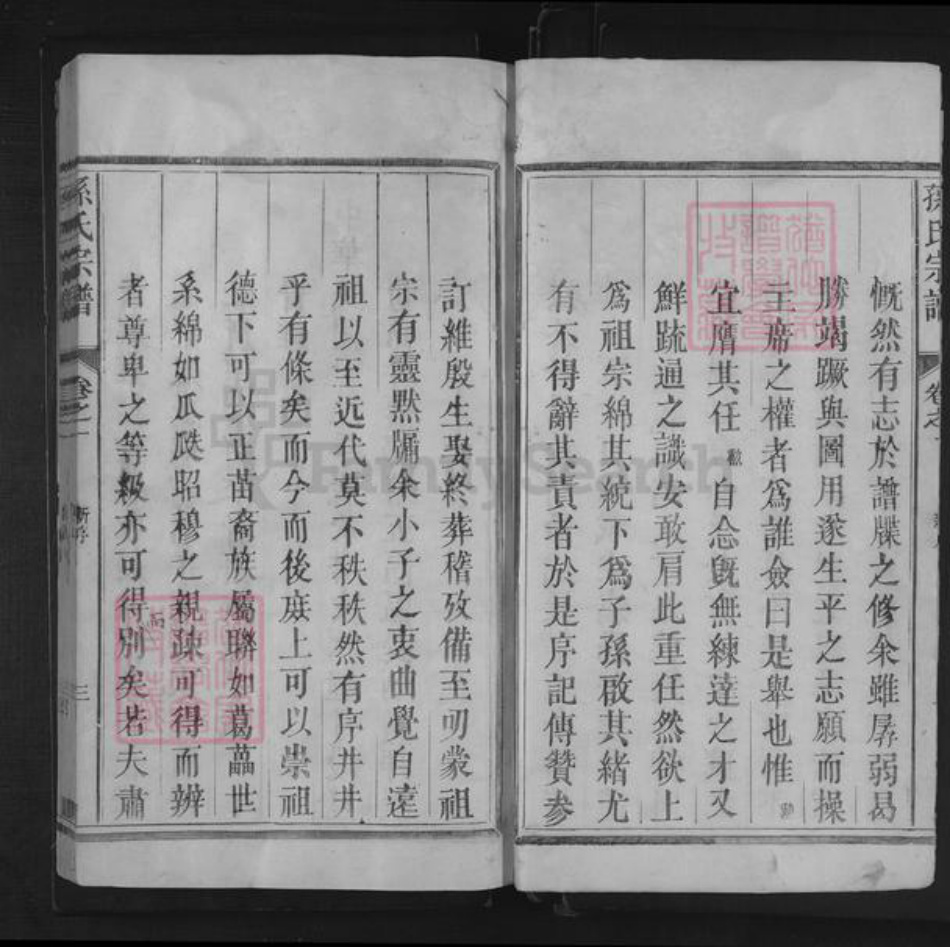 孫氏宗譜
卷之一
慨然有志於譜牒之修余雖孱弱曷
勝竭蹶與圖用遂生平之志願而操
主席之權者爲誰僉曰是舉也惟
宜膺其任 勲 自念旣無練達之才又
鮮疏通之識安敢肩此重任然欲上
爲祖宗綿其統下爲子孫啟其緒尤
有不得辭其責者於是序記傳贊参
訂維殷生娶終葬稽攷備至叨蒙祖
宗有靈黙牖余小子之衷曲覺自遠
祖以至近代莫不秩秩然有序井井
乎有條矣而今而後庶上可以崇祖
德下可以正苗裔族屬聯如葛藟世
系綿如瓜瓞昭穆之親疎可得而辨
者尊卑之等級亦可得而別矣若夫肅
孫氏宗譜
卷之一
新序
三
FamilySearch